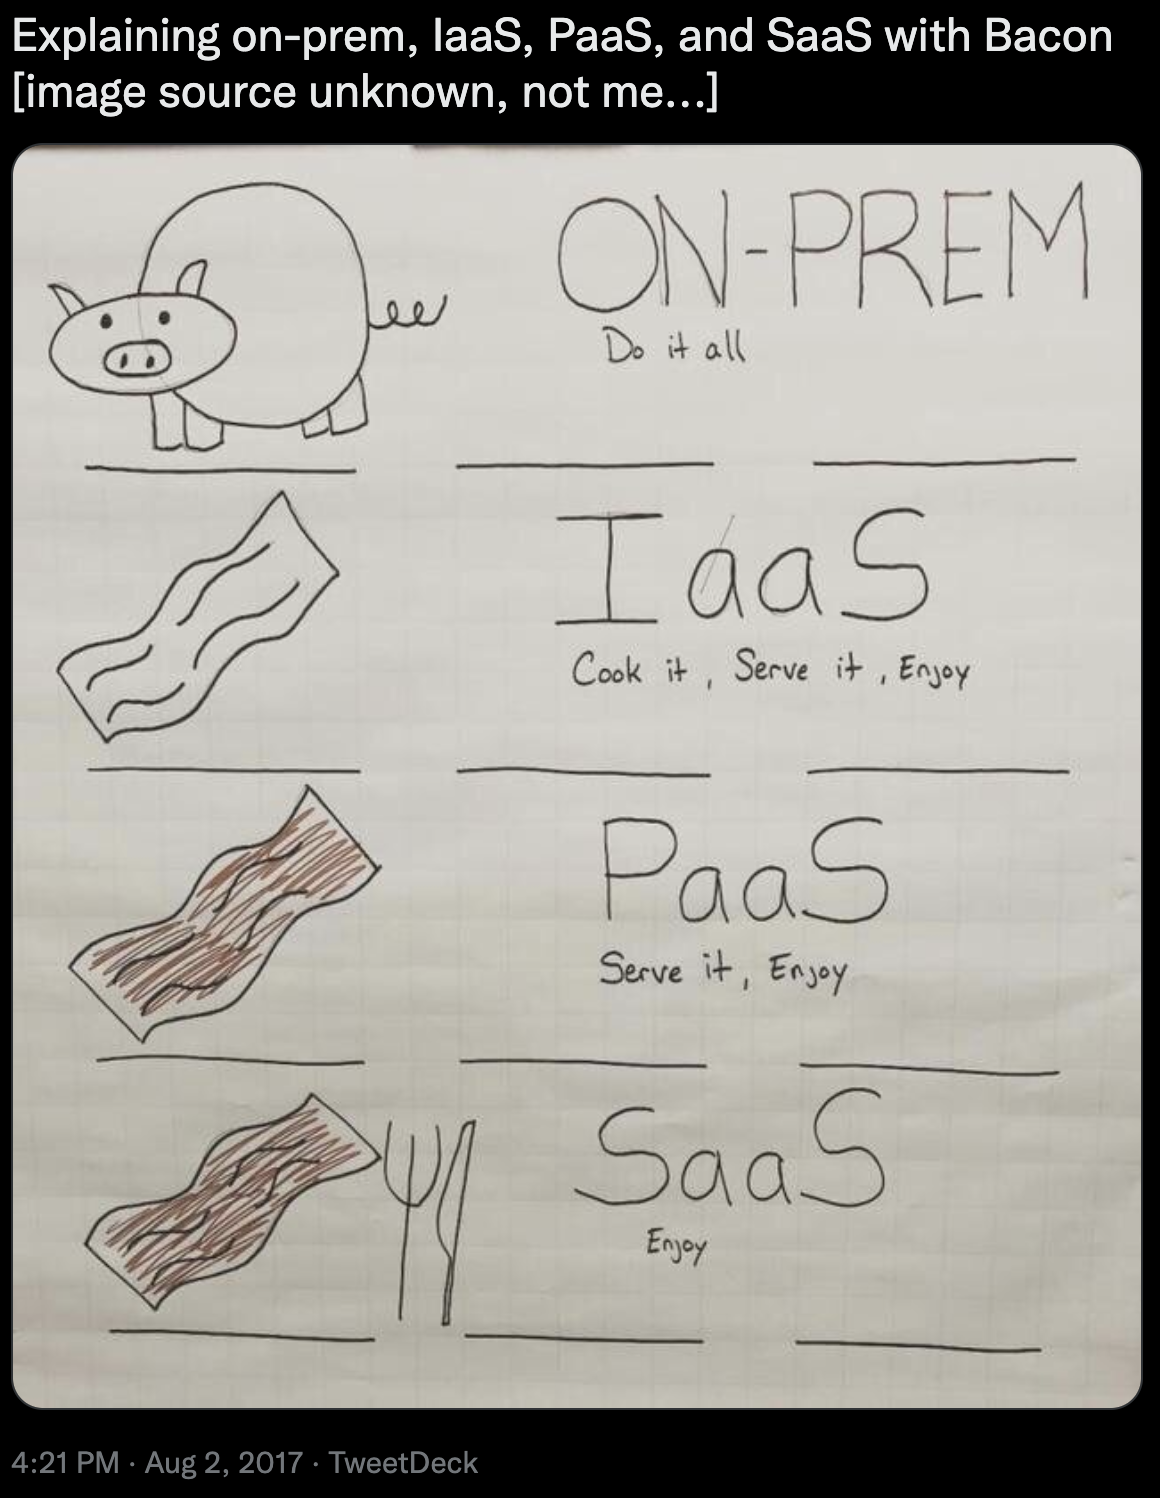 Explaining on-prem, IaaS, PaaS, and SaaS with Bacon
[image source unknown, not me...]
ON-PREM
Do it all
IaaS
Cook it, Serve it, Enjoy
PaaS
Serve it, Enjoy
SaaS
Enjoy
4:21 PM · Aug 2, 2017 · TweetDeck